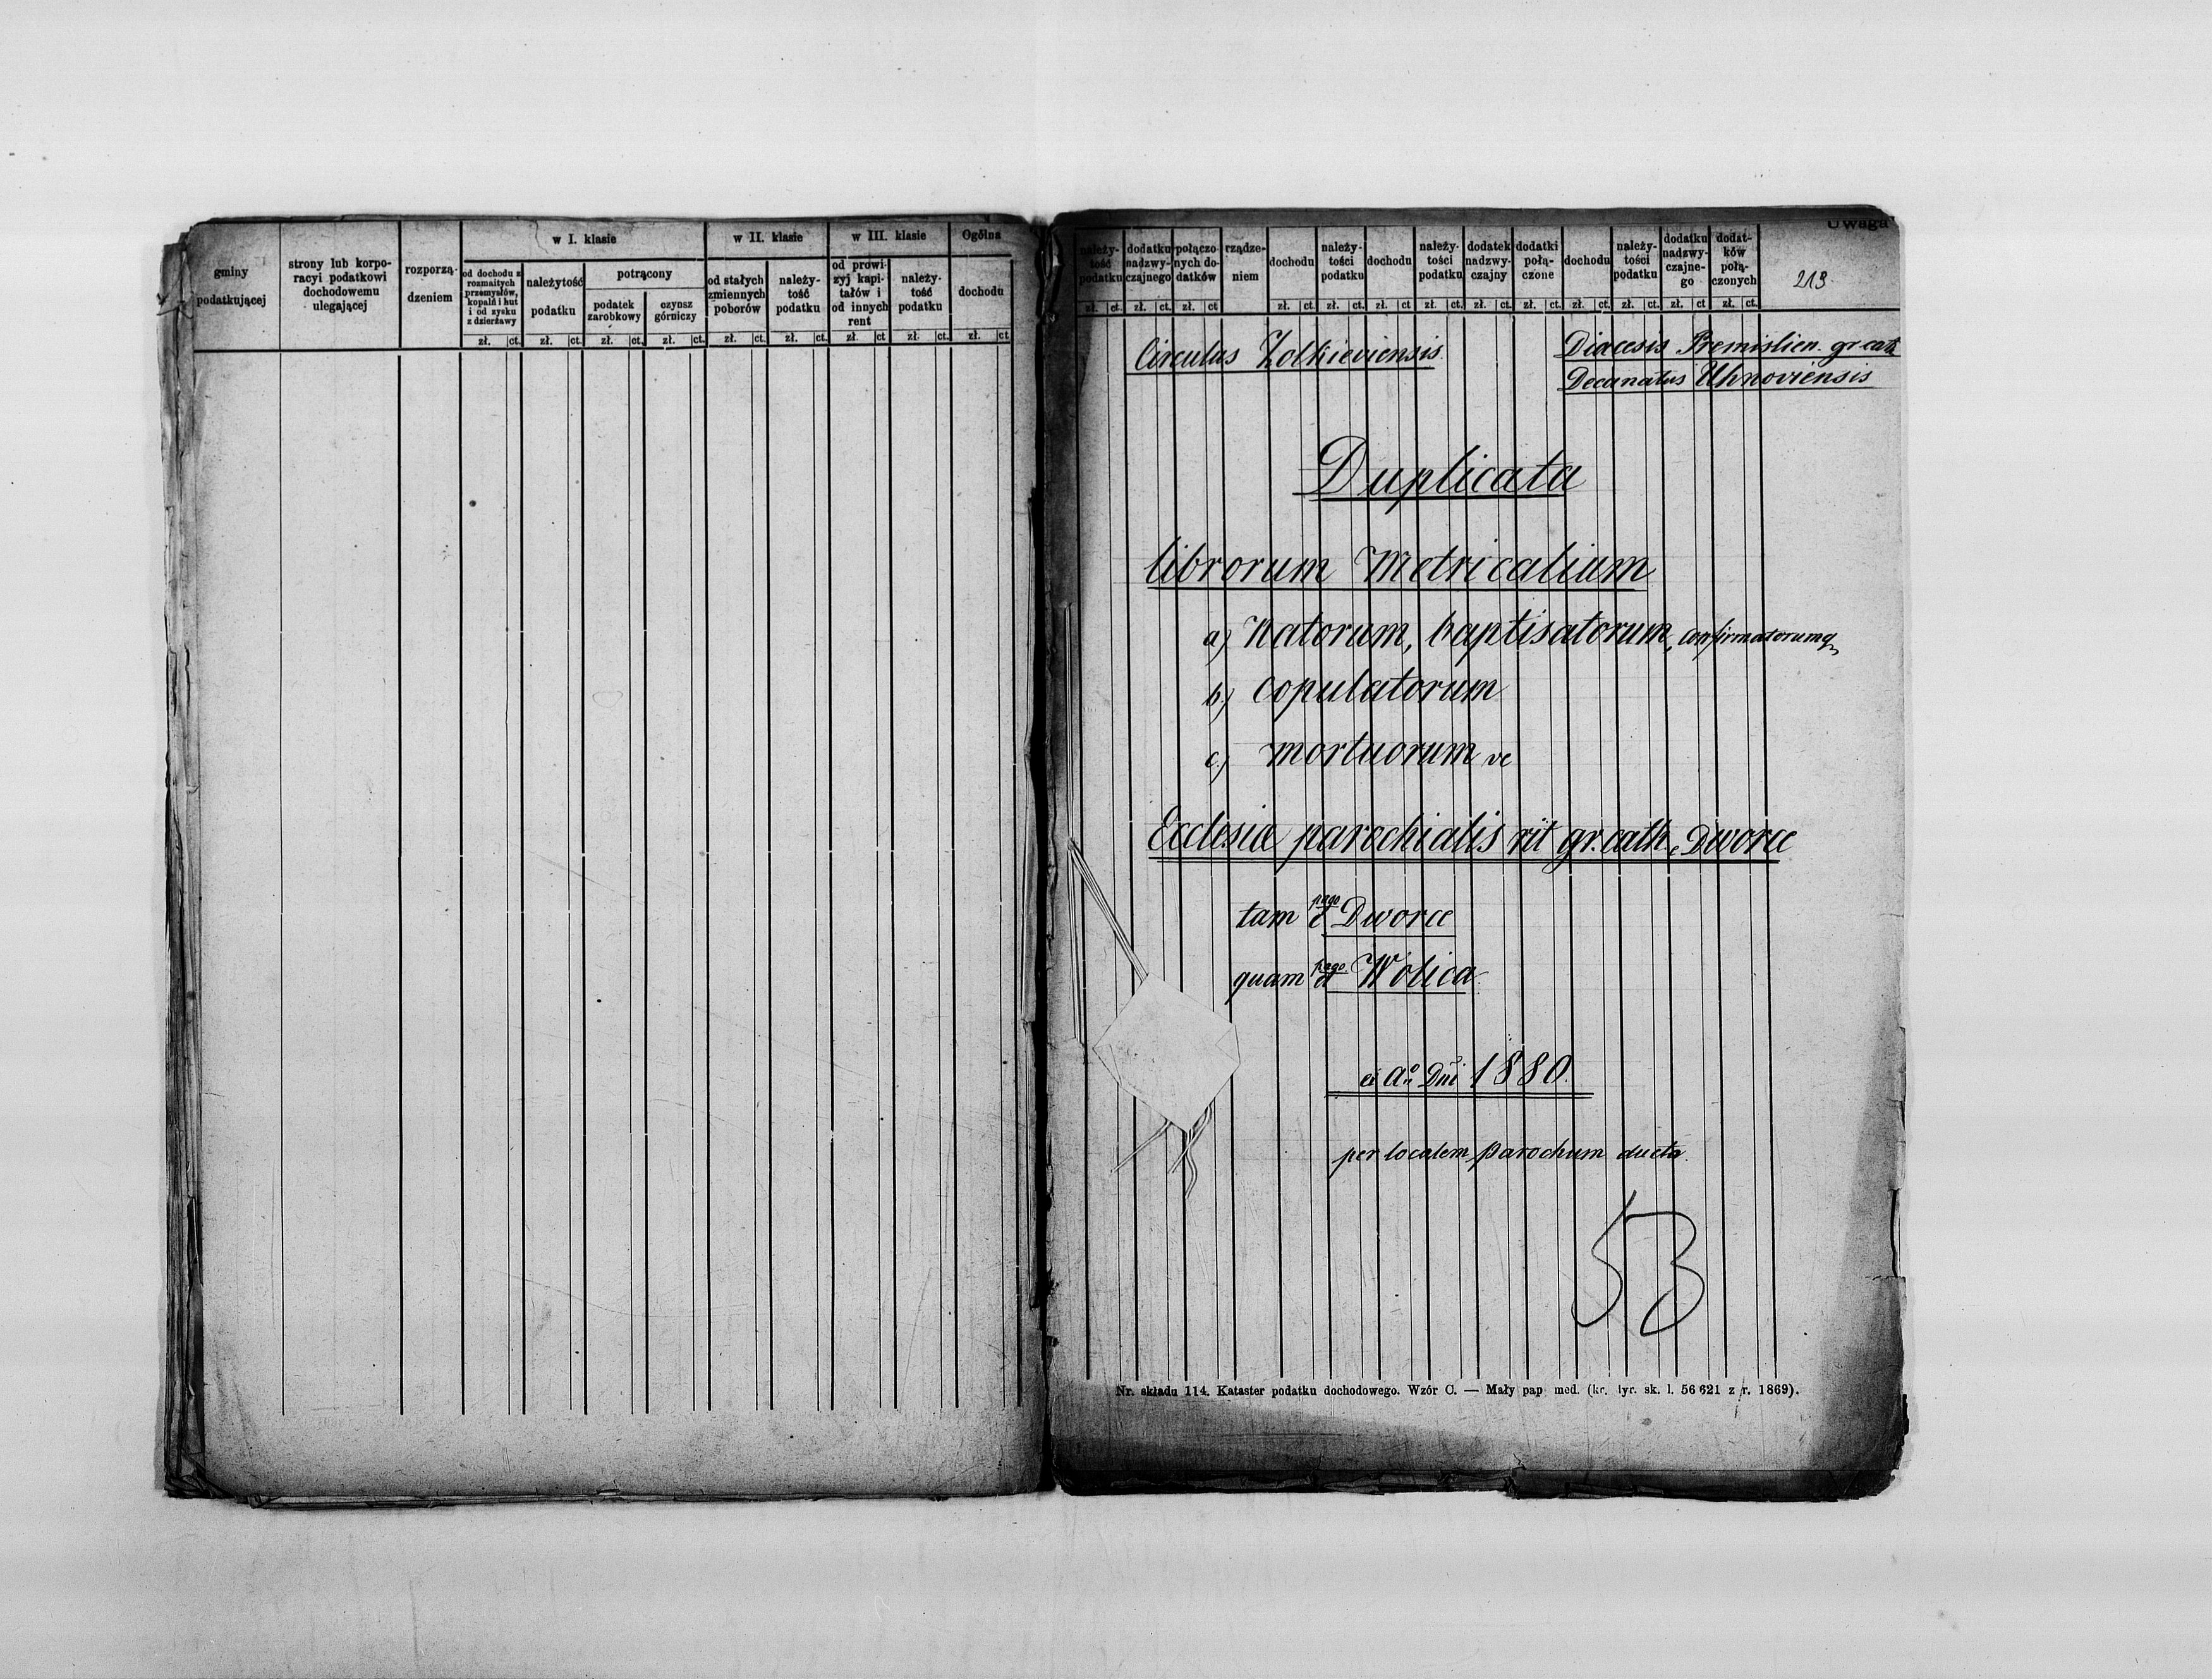 gminy
podatkującej
strony lub korpo-
racyi podatkowi
dochodowemu
ulegającej
rozporzą-
dzeniem
w I. klasie
od dochodu z
rozmaitych
przemysłów,
kopalń i hut
i od zysku
z dzierżawy
należytość
podatku
potrącony
podatek
zarobkowy
czynsz
górniczy
w II. klasie
od stałych
zmiennych
poborów
należy-
tość
podatku
w III. klasie
od prowi-
zyj kapi-
tałów i
od innych
rent
należy-
tość
podatku
Ogólna
dochodu
zł. ct. zł. ct. zł. ct. zł. ct. zł. ct. zł. ct. zł. ct zł. ct. zł. ct
Uwaga
należy-
tość
podatku
dodatku
nadzwy-
czajnego
połączo-
nych do-
datków
rządze-
niem
dochodu
należy-
tości
podatku
dochodu
należy-
tości
podatku
dodatek
nadzwy-
czajny
dodatki
połą-
czone
dochodu
należy-
tości
podatku
dodatku
nadzwy-
czajne-
go
dodat-
ków
połą-
czonych
213
zł. ct. zł. ct. zł. ct zł. ct. zł. ct. zł. ct zł. ct. zł. ct. zł. ct. zł. ct. zł. ct. zł. ct zł. ct.
Circulus Zolkieviensis
Diacesis Premislien. gr cath
Decanatus Uhnoviensis
Duplicata
librorum Metricalium
a) Natorum, baptisatorum, confirmatorumq
b) Copulatorum
c) mortuorum ve
Ecclesiæ parochialis rit gr. cath. Dworce
tam e pago Dworce
quam pago Wolica
Aº Dni 1880.
per localem parochum ducta.
53
Nr. składu 114. Kataster podatku dochodowego. Wzór C. — Mały pap med. (kr. dyr. sk. l. 56 621 z r. 1869).